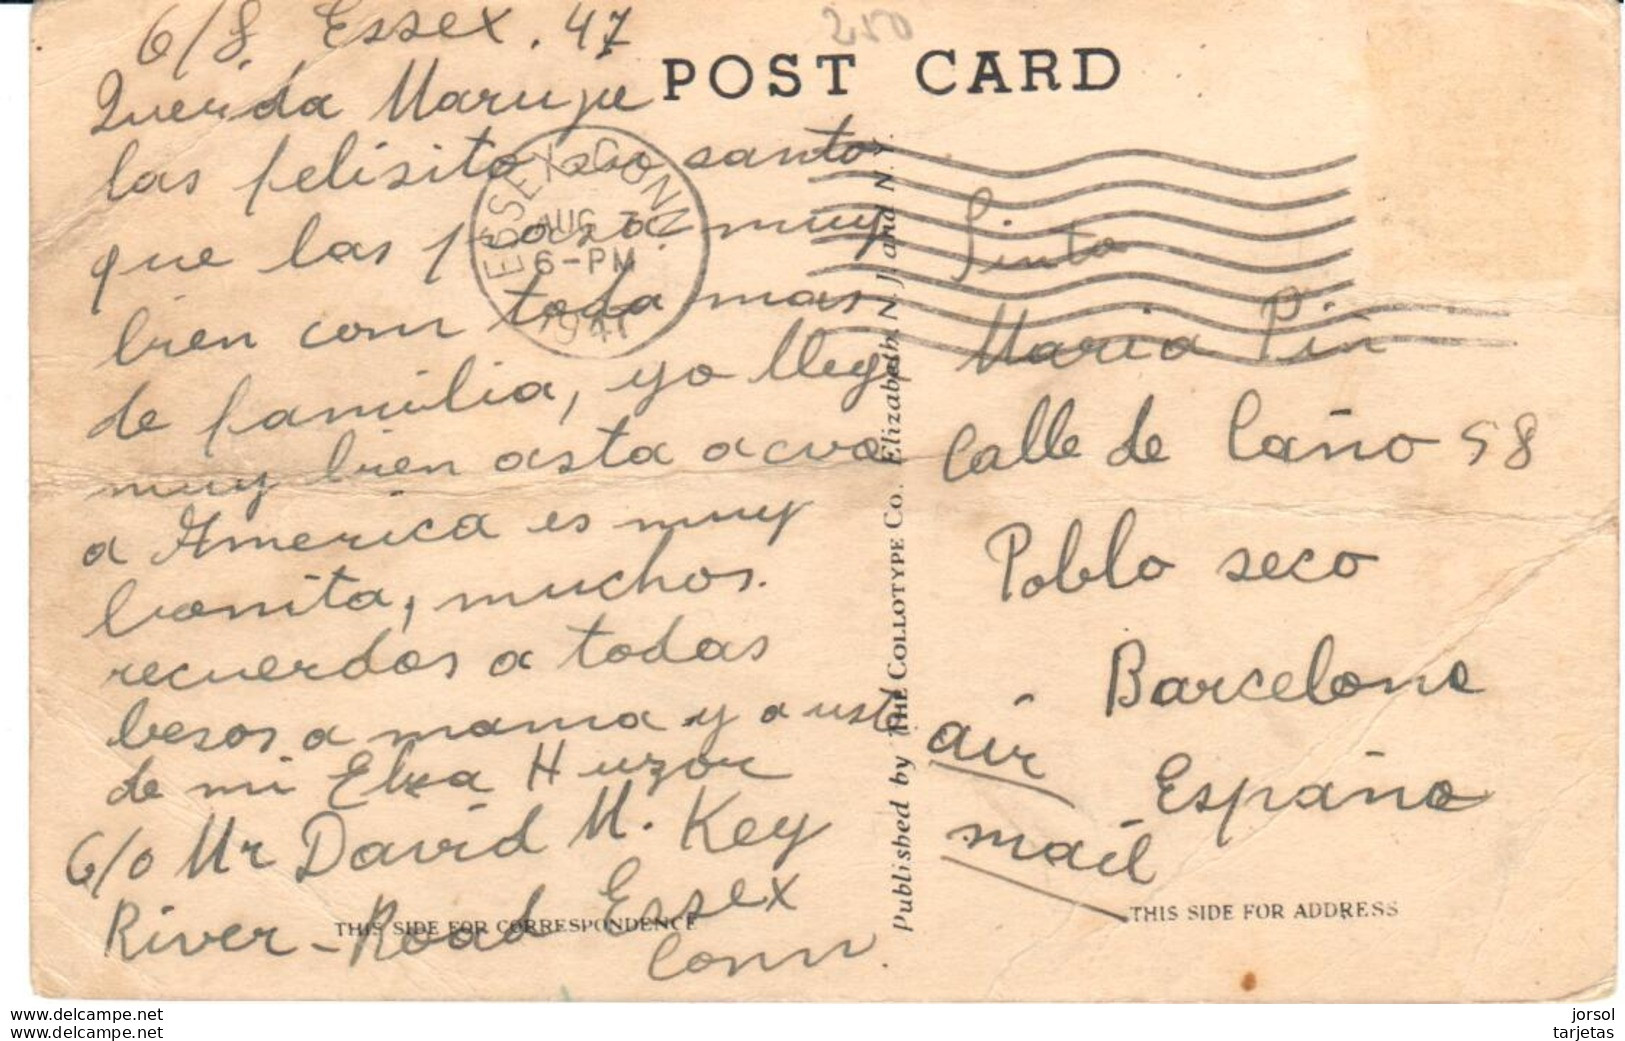 6/8 Essex. 47
250
POST CARD
Querida Maruje
las felisito su santo
que las pasa muy
bien com toda mas
de familia, yo llege
muy bien asta acva
a America es muy
bonita, muchos.
recuerdos a todas
besos a mama y a uste
de mi Elsa Huzor
C/o Mr David M. Key
River-Road Essex
Conn.
THIS SIDE FOR CORRESPONDENCE
ESSEX CONN
AUG 7
6-PM
1947
Published by THE COLLOTYPE Co. Elizabeth, N. J. and N. Y.
Sinta
Maria Pin
Calle de Caño 58
Poblo seco
Barcelona
España
air
mail
THIS SIDE FOR ADDRESS
www.delcampe.net
www.delcampe.net
jorsol
tarjetas